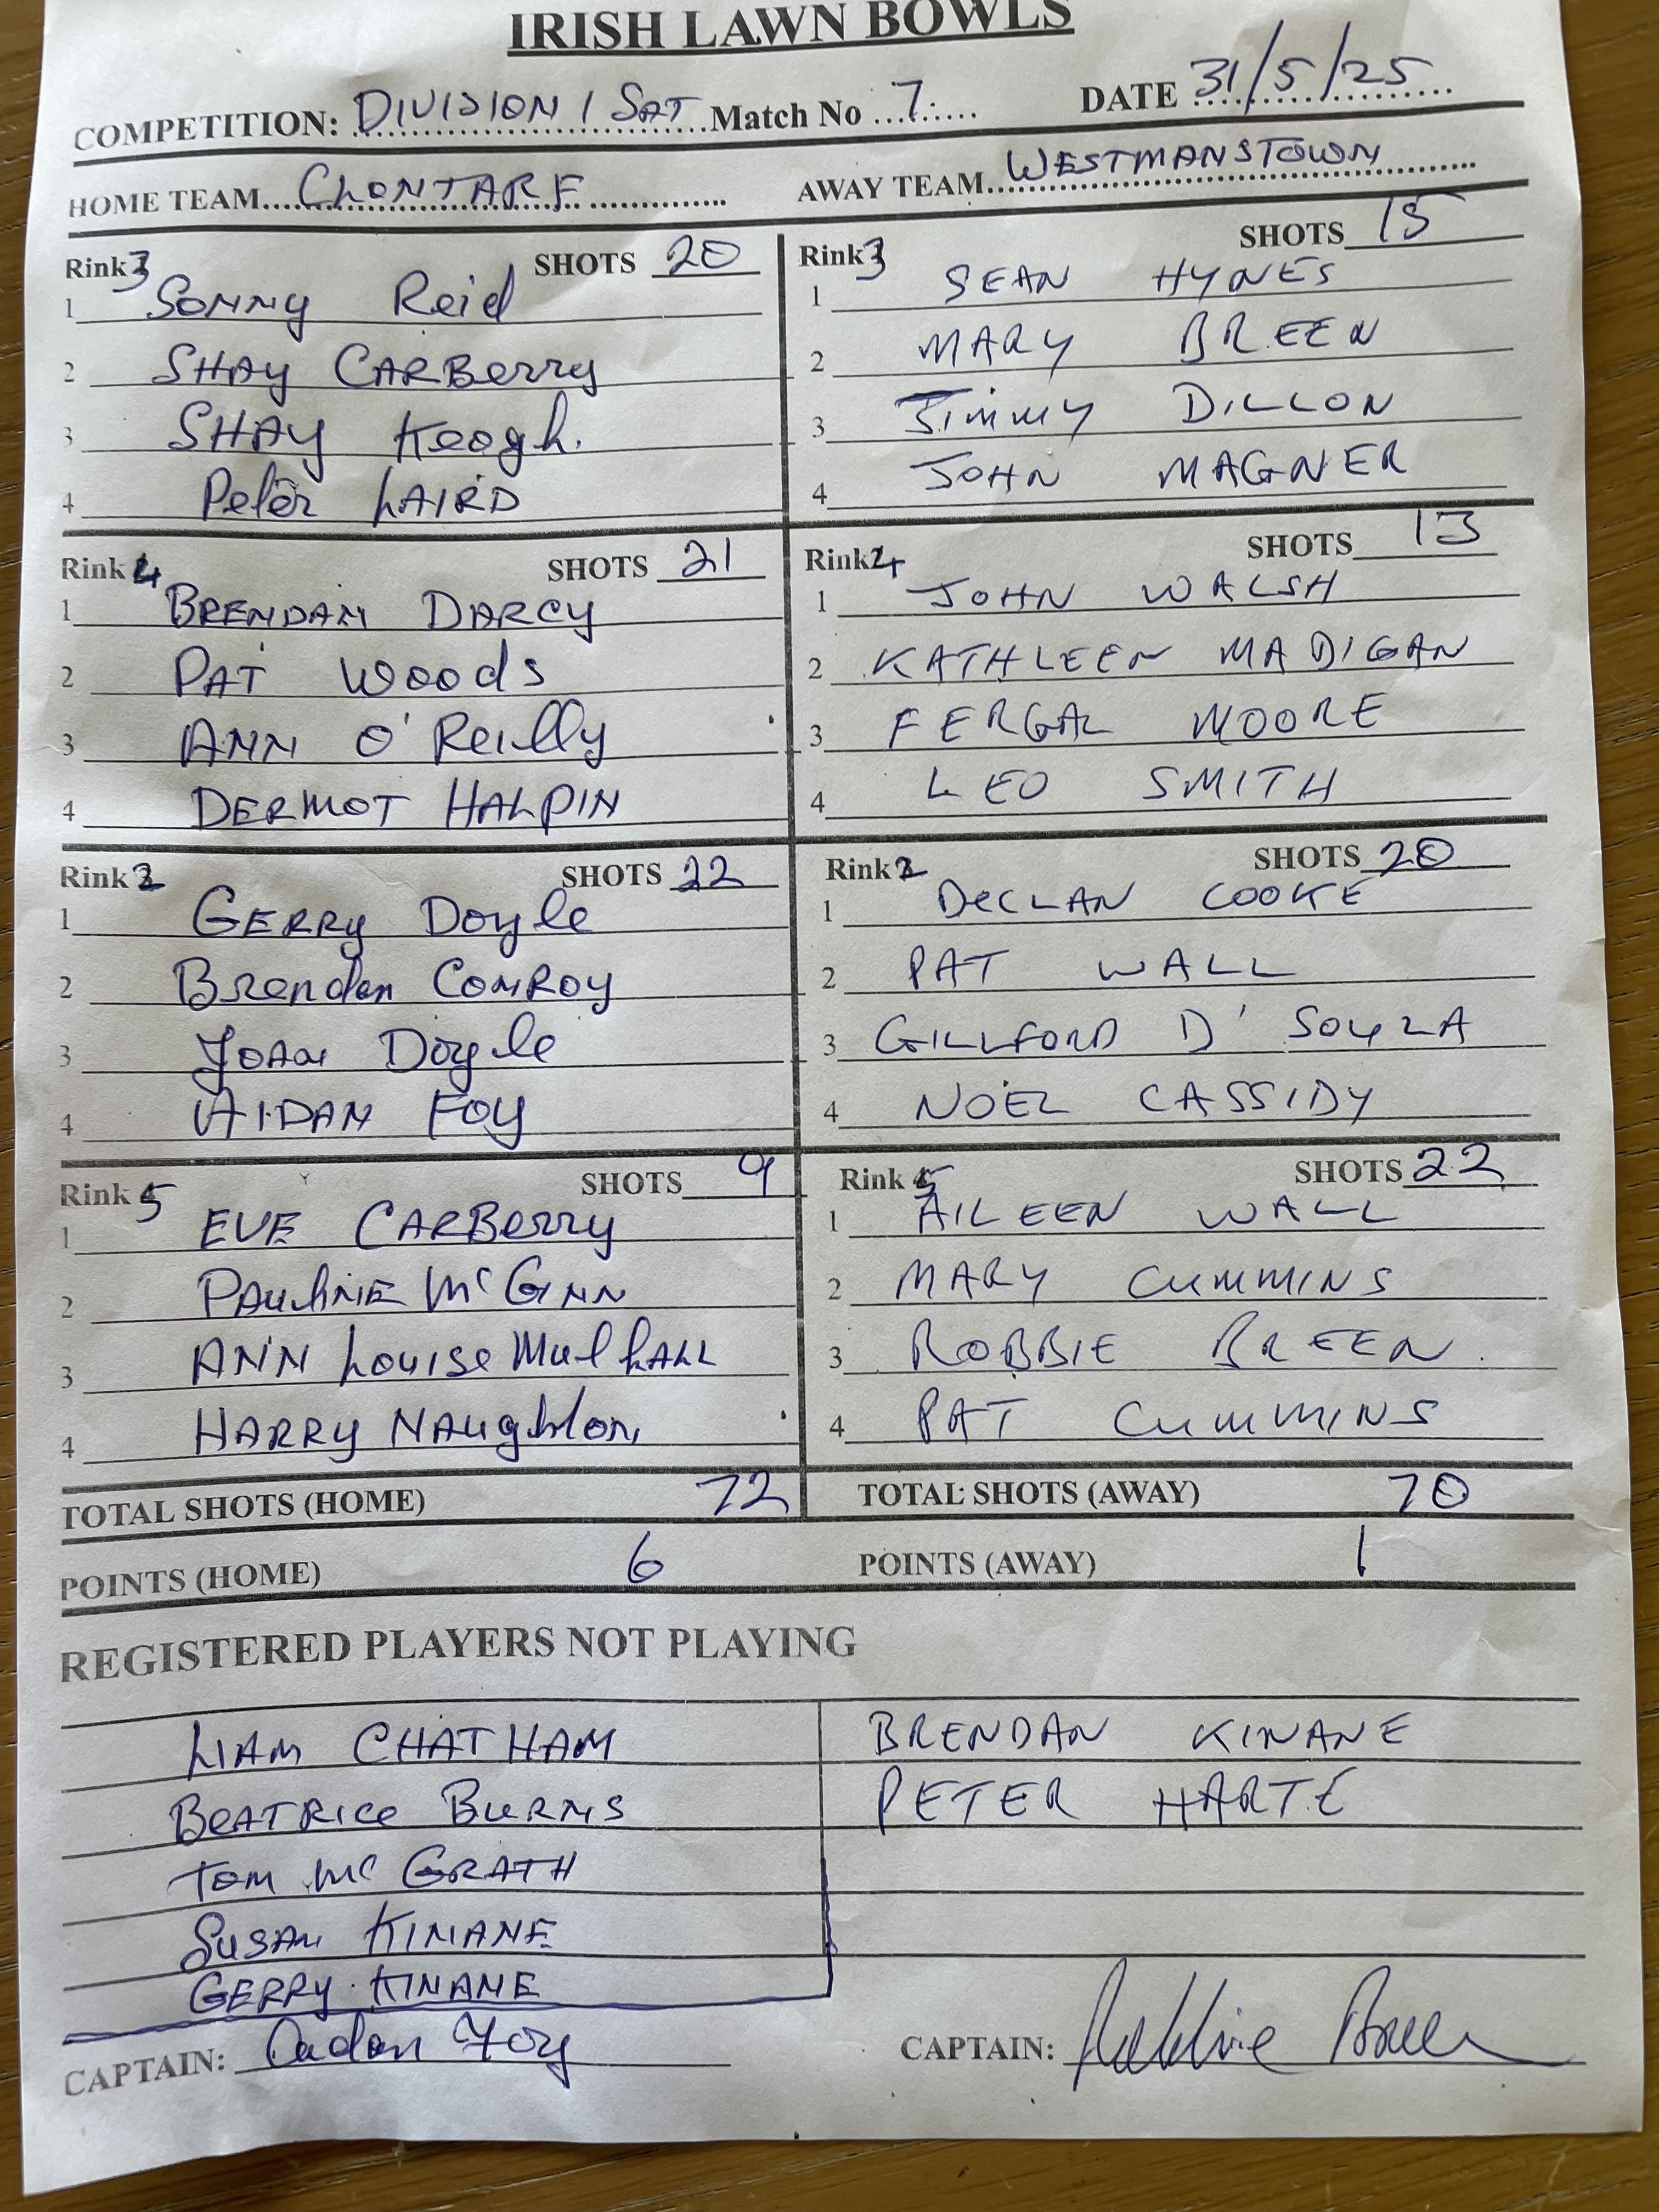 IRISH LAWN BOWLS
COMPETITION: DIVISION 1 SAT Match No 7. DATE 31/5/25
HOME TEAM CLONTARF AWAY TEAM WESTMANSTOWN
Rink 3 SHOTS 20
1 Sonny Reid
2 SHAY CARBerry
3 SHAY Keogh.
4 Peter LAIRD
Rink 3 SHOTS 15
1 SEAN HYNES
2 MARY BREEN
3 JIMMY DILLON
4 JOHN MAGNER
Rink 4 SHOTS 21
1 BRENDAN DARCY
2 PAT Woods
3 ANN O'Reilly
4 DERMOT HALPIN
Rink 4 SHOTS 13
1 JOHN WALSH
2 KATHLEEN MADIGAN
3 FERGAL MOORE
4 LEO SMITH
Rink 2 SHOTS 22
1 GERRY Doyle
2 Brendan CONROY
3 JOAN Doyle
4 AIDAN FOY
Rink 2 SHOTS 20
1 DECLAN COOKE
2 PAT WALL
3 GILLFORD D'SOUZA
4 NOEL CASSIDY
Rink 5 SHOTS 9
1 EVE CARBerry
2 PAULINE McGINN
3 ANN Louise MulhALL
4 HARRY NAughton
Rink 5 SHOTS 22
1 AILEEN WALL
2 MARY CUMMINS
3 ROBBIE BREEN
4 PAT CUMMINS
TOTAL SHOTS (HOME) 72 TOTAL SHOTS (AWAY) 70
POINTS (HOME) 6 POINTS (AWAY) 1
REGISTERED PLAYERS NOT PLAYING
LIAM CHATHAM BRENDAN KINANE
BEATRICE BURNS PETER HARTE
TOM Mc GRATH
SUSAN KINANE
GERRY KINANE
CAPTAIN: Aidan Foy CAPTAIN: Robbie Breen